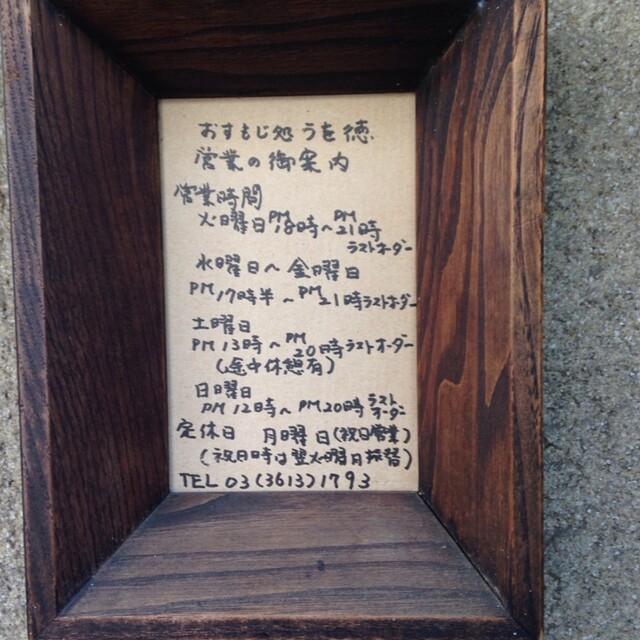 おすもじ処 うを徳
営業の御案内
営業時間
火曜日PM18時〜PM21時
ラストオーダー
水曜日〜金曜日
PM17時半〜PM21時ラストオーダー
土曜日
PM13時〜PM20時ラストオーダー
(途中休憩有)
日曜日
PM12時〜PM20時ラストオーダー
定休日 月曜日(祝日営業)
(祝日時は翌火曜日振替)
TEL 03(3613)1793